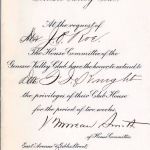 At the request of
J. C. Roe
The House Committee of the
Genesee Valley Club, have the honor to extend to
the privileges of their Club House
for the period of two weeks
Smith
of House Committee
East Avenue & Gibbs Street